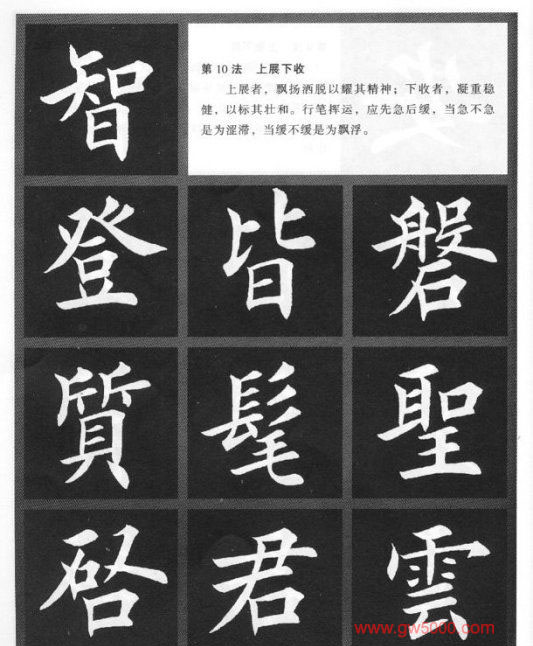 智
第10法 上展下收
上展者，飘扬洒脱以耀其精神；下收者，凝重稳
健，以标其壮和。行笔挥运，应先急后缓，当急不急
是为涩滞，当缓不缓是为飘浮。
登 皆 磐
質 髦 聖
啓 君 雲
www.gw5000.com